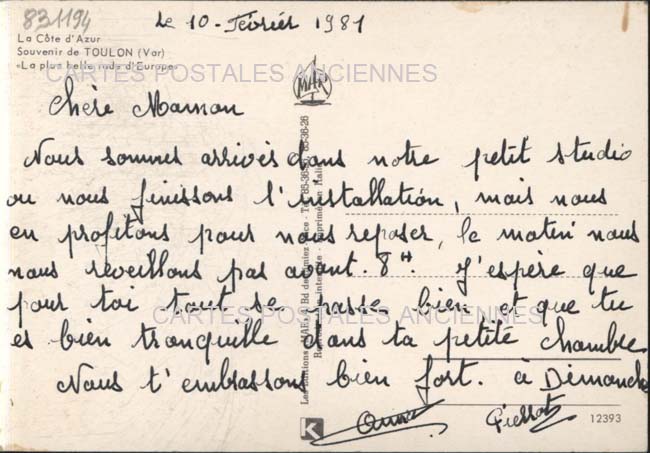 831194
Le 10 - Février 1981
La Côte d'Azur
Souvenir de TOULON (Var)
«La plus belle rade d'Europe»
CARTES POSTALES ANCIENNES
MAR
Chère Maman
Nous sommes arrivés dans notre petit studio
ou nous finissons l'installation, mais nous
en profitons pour nous reposer, le matin nous
nous reveillons pas avant 8H. J'espère que
pour toi tout se passe bien, et que tu
CARTES POSTALES ANCIENNES
es bien tranquille dans ta petite chambre
Nous t'embrassons bien fort. à Dimanche
Pierrot
K
12393